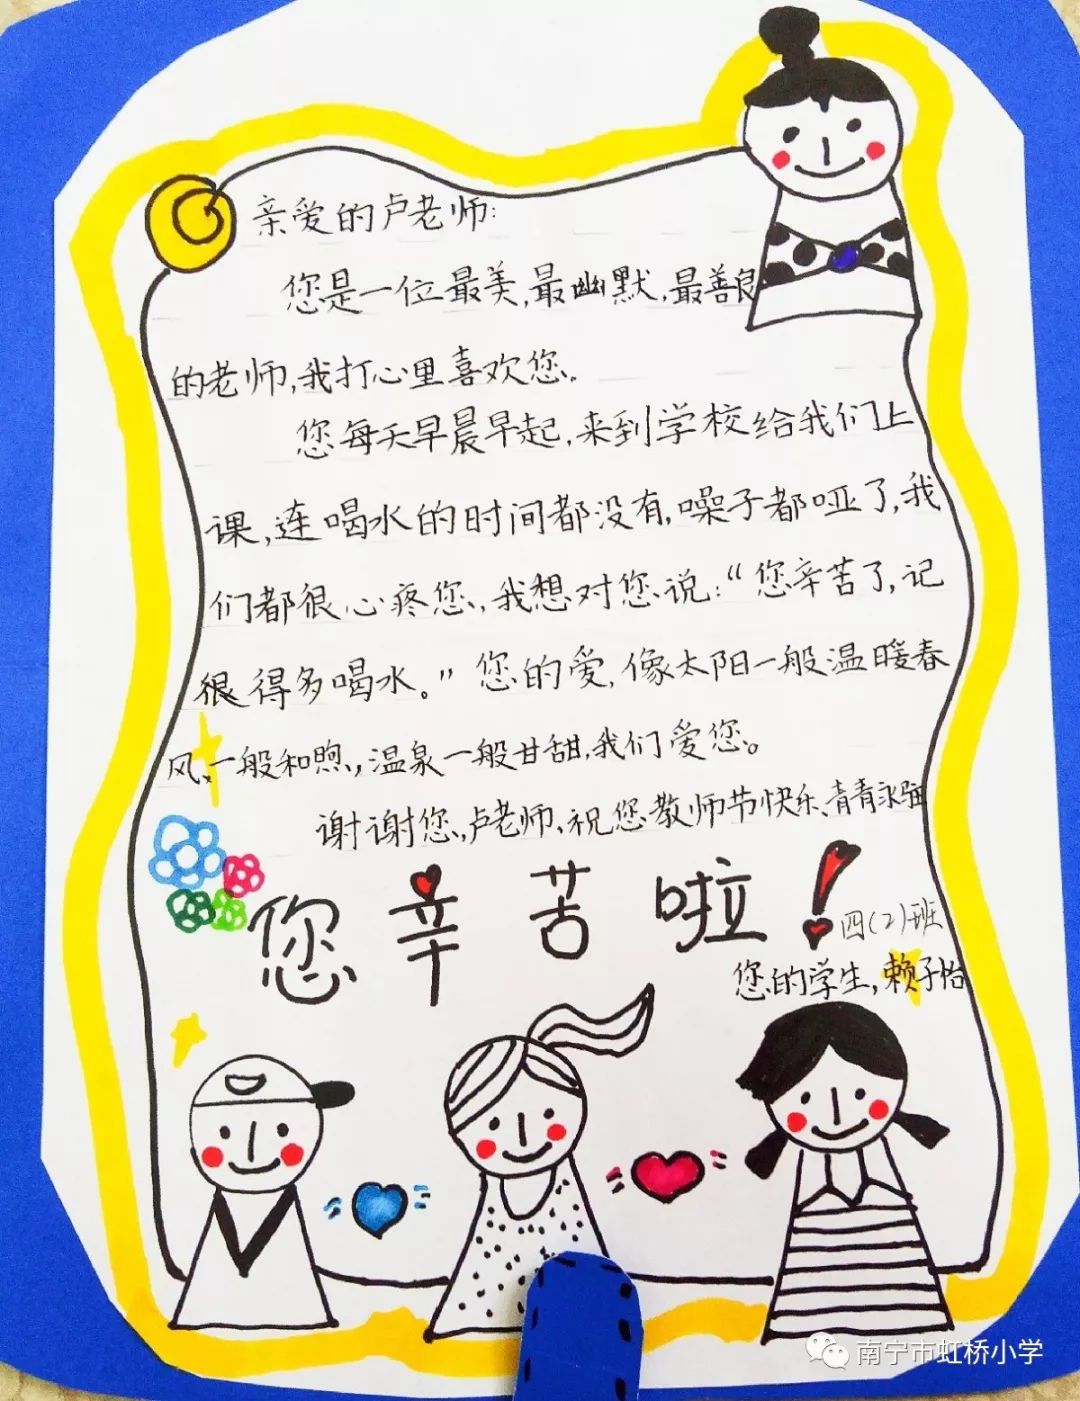 亲爱的卢老师:
您是一位最美,最幽默,最善良
的老师,我打心里喜欢您。
您每天早晨早起,来到学校给我们上
课,连喝水的时间都没有,嗓子都哑了,我
们都很心疼您,我想对您说:“您辛苦了,记
得多喝水。”您的爱,像太阳一般温暖春
风、一般和煦,温泉一般甘甜,我们爱您。
谢谢您,卢老师、祝您教师节快乐、青青永驻
您辛苦啦!
四(2)班
您的学生,赖子怡
南宁市虹桥小学